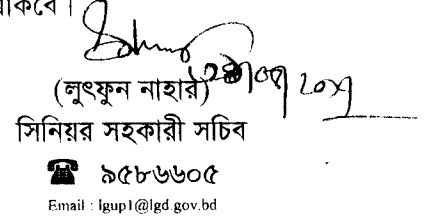 থাকবে।
(লুৎফুন নাহার)
সিনিয়র সহকারী সচিব
☎ ৯৫৮৬৬০৫
Email : lgup1@lgd.gov.bd